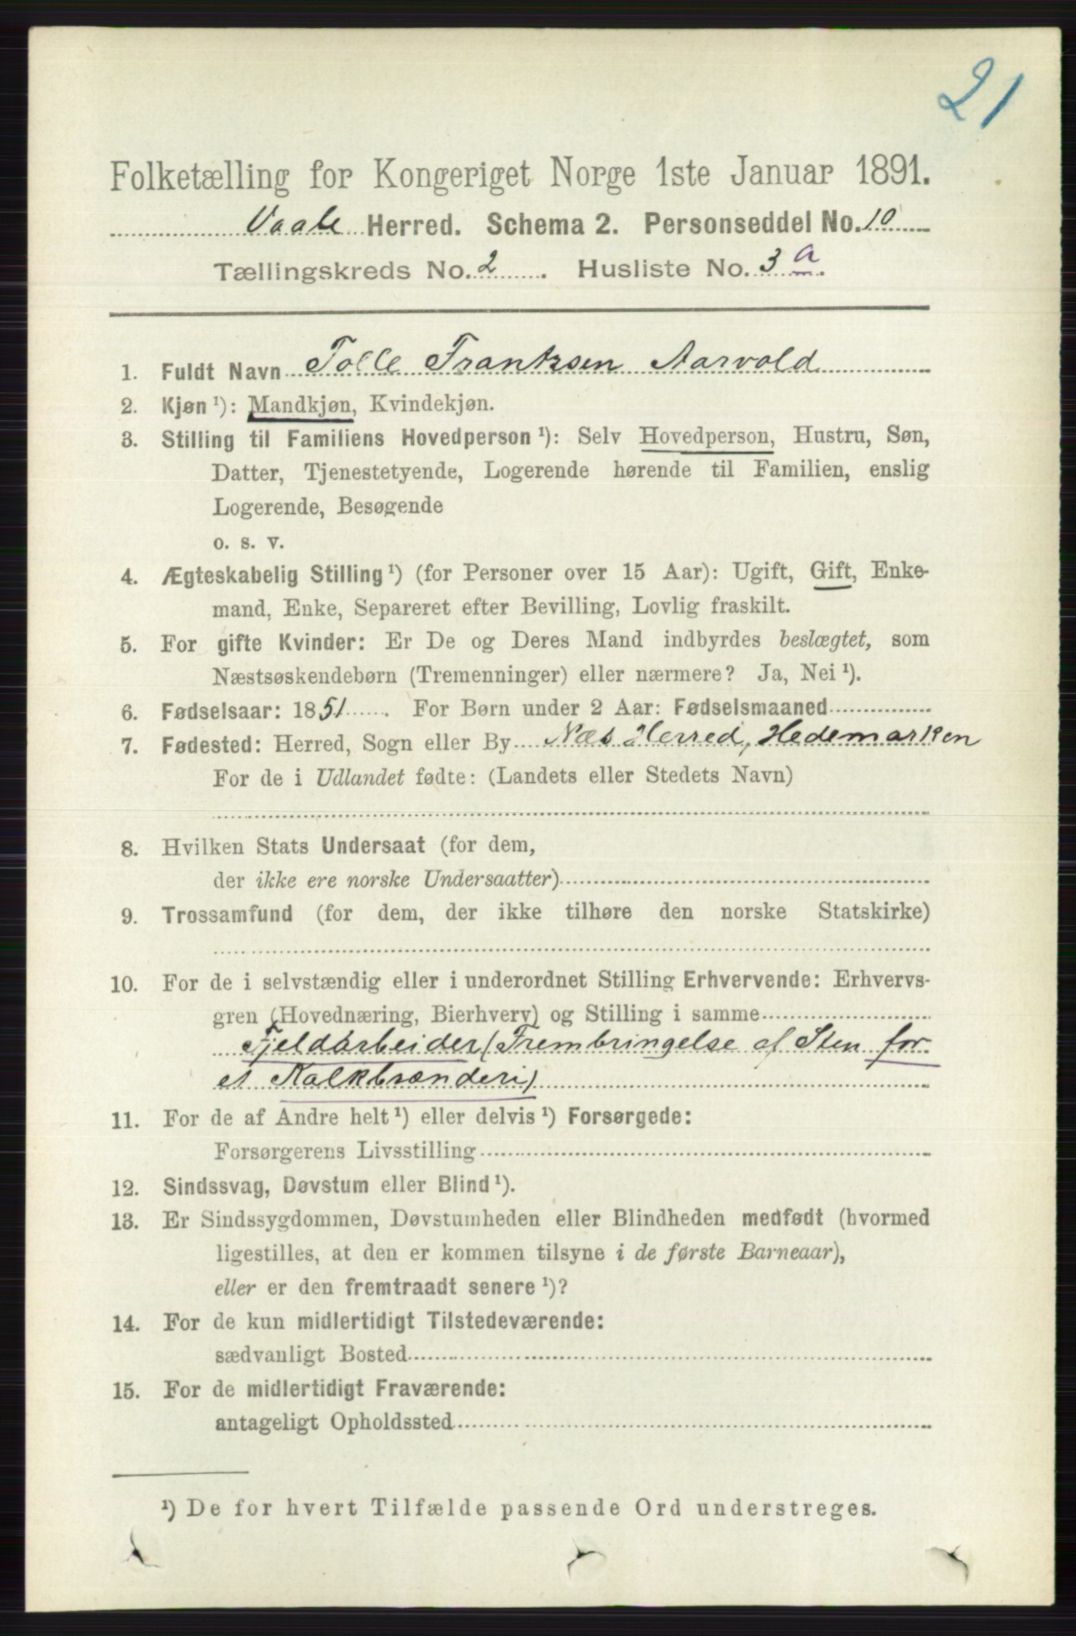 21
Folketælling for Kongeriget Norge 1ste Januar 1891.
Vaale Herred. Schema 2. Personseddel No. 10
Tællingskreds No. 2. Husliste No. 3 a.
1. Fuldt Navn Tolle Frantzsen Aarvold
2. Kjøn ¹): Mandkjøn, Kvindekjøn.
3. Stilling til Familiens Hovedperson ¹): Selv Hovedperson, Hustru, Søn,
Datter, Tjenestetyende, Logerende hørende til Familien, enslig
Logerende, Besøgende
o. s. v.
4. Ægteskabelig Stilling ¹) (for Personer over 15 Aar): Ugift, Gift, Enke-
mand, Enke, Separeret efter Bevilling, Lovlig fraskilt.
5. For gifte Kvinder: Er De og Deres Mand indbyrdes beslægtet, som
Næstsøskendebørn (Tremenninger) eller nærmere? Ja, Nei ¹).
6. Fødselsaar: 1851. For Børn under 2 Aar: Fødselsmaaned
7. Fødested: Herred, Sogn eller By Næs Herred, Hedemarken
For de i Udlandet fødte: (Landets eller Stedets Navn)
8. Hvilken Stats Undersaat (for dem,
der ikke ere norske Undersaatter)
9. Trossamfund (for dem, der ikke tilhøre den norske Statskirke)
10. For de i selvstændig eller i underordnet Stilling Erhvervende: Erhvervs-
gren (Hovednæring, Bierhverv) og Stilling i samme
Fjeldarbeider (Frembringelse af Sten for
et Kalkbrænderi)
11. For de af Andre helt ¹) eller delvis ¹) Forsørgede:
Forsørgerens Livsstilling
12. Sindssvag, Døvstum eller Blind ¹).
13. Er Sindssygdommen, Døvstumheden eller Blindheden medfødt (hvormed
ligestilles, at den er kommen tilsyne i de første Barneaar),
eller er den fremtraadt senere ¹)?
14. For de kun midlertidigt Tilstedeværende:
sædvanligt Bosted
15. For de midlertidigt Fraværende:
antageligt Opholdssted
¹) De for hvert Tilfælde passende Ord understreges.